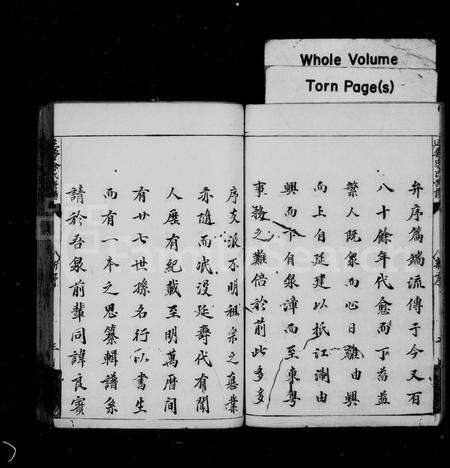 Whole Volume
Torn Page(s)
弁序篇端流傳于今又百
八十餘年代愈而丁益
繁人既眾而心日離由興
而上自延建以抵江潮由
興而下自泉漳而至東粵
事務之難倍於前此多多
序支派不明祖宗之德業
亦隨而泯沒延壽代有聞
人歷有紀載至明萬曆間
有廿七世孫名行以書生
而有一本之思纂輯譜系
請於吾泉前輩同諱良寶